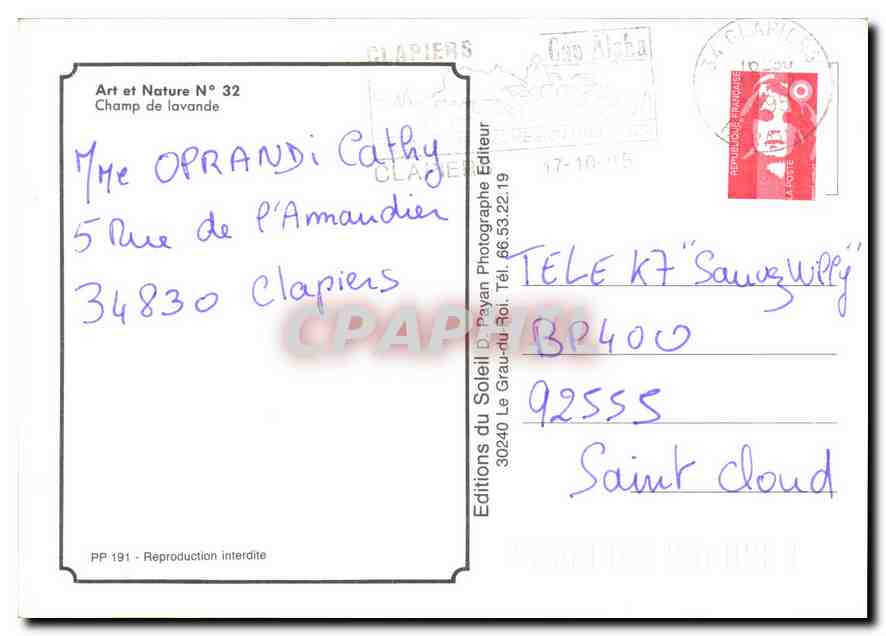 CLAPIERS
Cap Alpha
34 CLAPIERS
17-10-95
REPUBLIQUE FRANÇAISE
LA POSTE
Art et Nature N° 32
Champ de lavande
Mme OPRANDi Cathy
5 Rue de l'Amandier
34830 Clapiers
PP 191 - Reproduction interdite
Editions du Soleil D. Payan Photographe Editeur
30240 Le Grau-du-Roi. Tél. 66.53.22.19
TELE K7 "Sauvez Willy"
BP400
92555
Saint Cloud
CPAPHIL